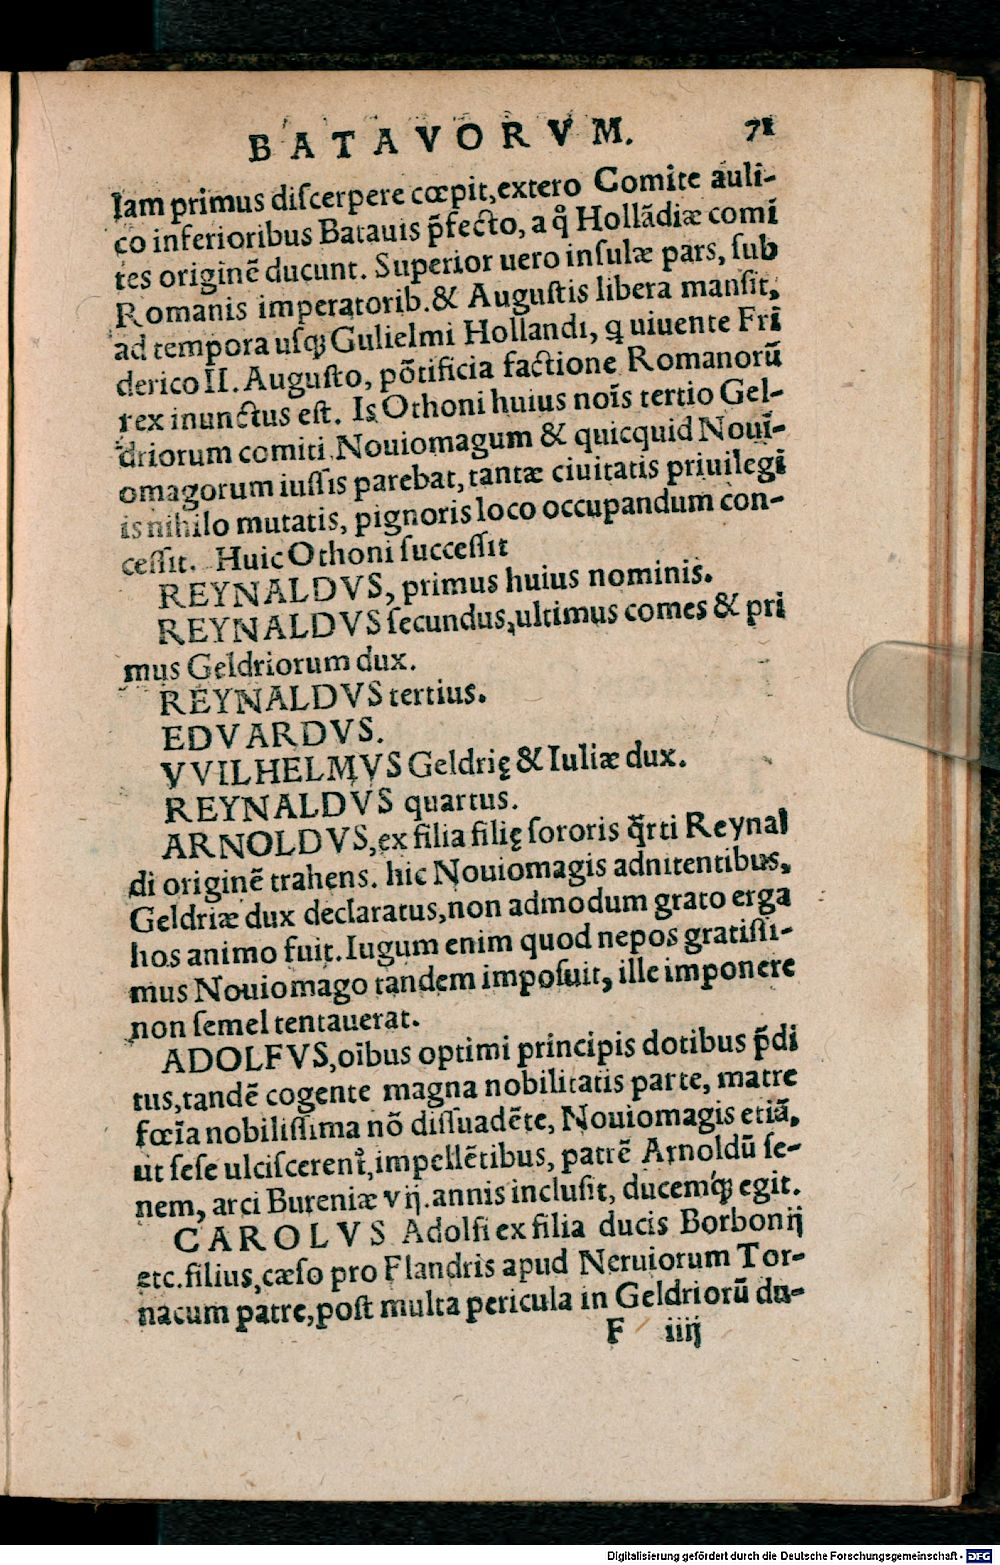 BATAVORVM. 71
Iam primus discerpere cœpit, extero Comite auli-
co inferioribus Batauis p̄fecto, a qͦ Hollādiæ comī
tes originē ducunt. Superior uero insulæ pars, sub
Romanis imperatorib. & Augustis libera mansit,
ad tempora usq; Gulielmi Hollandi, q uiuente Frī
derico II. Augusto, pōtificia factione Romanorū
rex inunctus est. Is Othoni huius noīs tertio Gel-
driorum comiti Nouiomagum & quicquid Nouī-
omagorum iussis parebat, tantæ ciuitatis priuilegī
is nihilo mutatis, pignoris loco occupandum con-
cessit. Huic Othoni successit
REYNALDVS, primus huius nominis.
REYNALDVS secundus, ultimus comes & pri
mus Geldriorum dux.
REYNALDVS tertius.
EDVARDVS.
VVILHELMVS Geldrię & Iuliæ dux.
REYNALDVS quartus.
ARNOLDVS, ex filia filię sororis q̄rti Reynal
di originē trahens. hic Nouiomagis adnitentibus,
Geldriæ dux declaratus, non admodum grato erga
hos animo fuit. Iugum enim quod nepos gratissi-
mus Nouiomago tandem imposuit, ille imponere
non semel tentauerat.
ADOLFVS, oībus optimi principis dotibus p̄di
tus, tandē cogente magna nobilitatis parte, matre
fœīa nobilissima nō dissuadēte, Nouiomagis etiā,
ut sese ulciscerent᷑, impellētibus, patrē Arnoldū se-
nem, arci Bureniæ vij. annis inclusit, ducemq́; egit.
CAROLVS Adolfi ex filia ducis Borbonij
etc. filius, cæso pro Flandris apud Neruiorum Tor-
nacum patre, post multa pericula in Geldriorū du-
F iiij
Digitalisierung gefördert durch die Deutsche Forschungsgemeinschaft - DFG